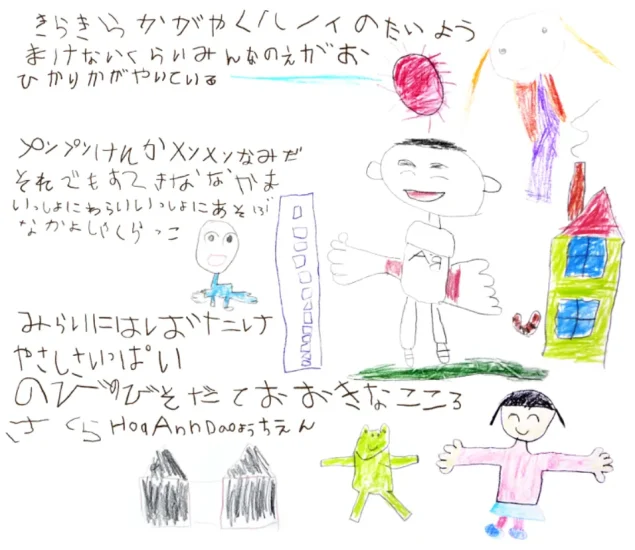 きらきら かがやく ハノイのたいよう
まけないくらいみんなのえがお
ひかりかがやいている
プンプンけんか メソメソなみだ
それでもすてきななかま
いっしょにわらいいっしょにあそぶ
なかよしさくらっこ
みらいにはばたけ
やさしさいっぱい
のびのびそだておおきなこころ
さくら HoaAnhDaoようちえん